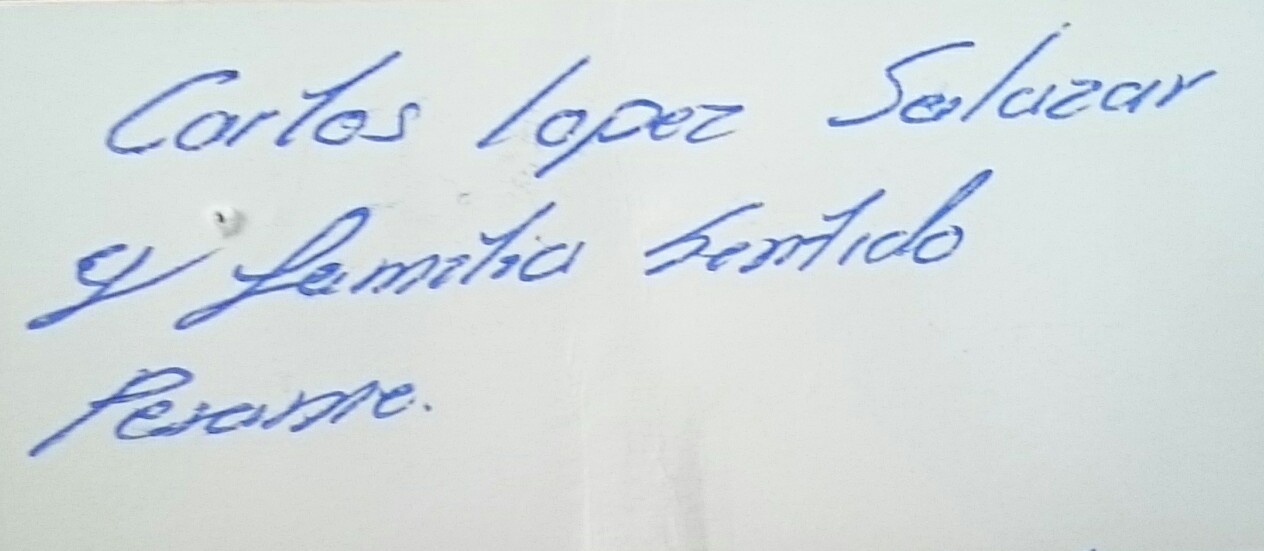 Carlos Lopez Salazar
y familia sentido
Pesame.